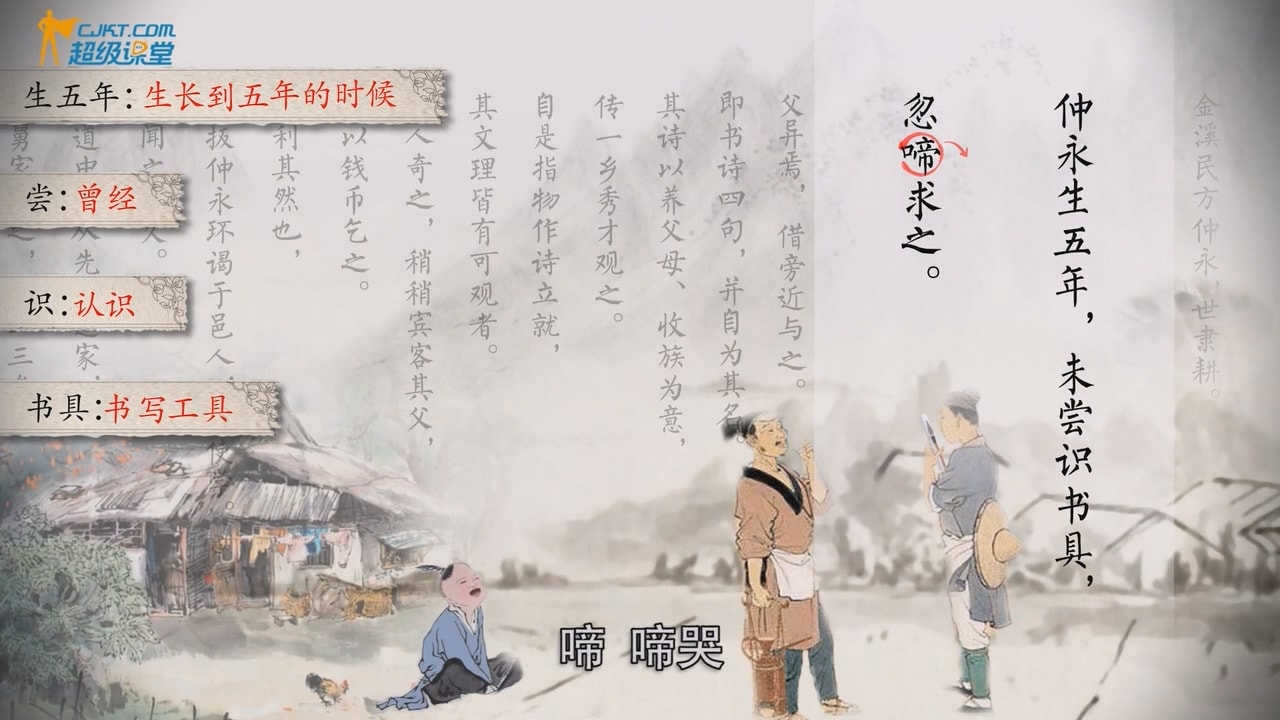 CJKT.COM
超级课堂
生五年：生长到五年的时候
尝：曾经
识：认识
书具：书写工具
金溪民方仲永，世隶耕。
仲永生五年，未尝识书具，
忽啼求之。
父异焉，借旁近与之。
即书诗四句，并自为其名。
其诗以养父母、收族为意，
传一乡秀才观之。
自是指物作诗立就，
其文理皆有可观者。
人奇之，稍稍宾客其父，
以钱币乞之。
利其然也，
拔仲永环谒于邑人，
啼 啼哭